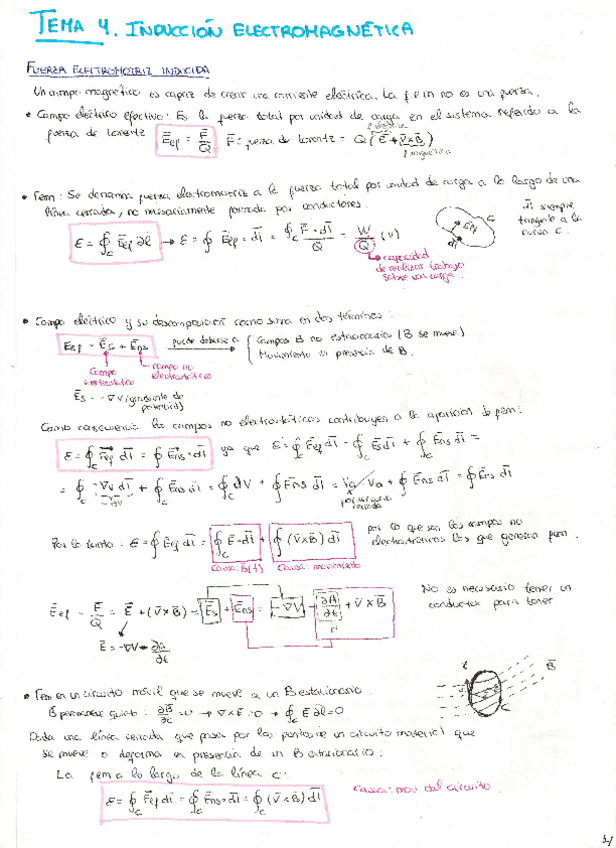 TEMA 4. INDUCCIÓN ELECTROMAGNÉTICA
FUERZA ELECTROMOTRIZ INDUCIDA
Un campo magnético es capaz de crear una corriente eléctrica. La fem no es una fuerza.
• Campo eléctrico efectivo: Es la fuerza total por unidad de carga en el sistema referido a la
fuerza de Lorentz E̅ef = F̅/Q F̅: fuerza de Lorentz = Q(E̅ + v̅×B̅)
f. magnética
• Fem: Se denomina fuerza electromotriz a la fuerza total por unidad de carga a lo largo de una
línea cerrada, no necesariamente formada por conductores.
dl̅ siempre
tangente a la
curva C.
ε = ∮c E̅ef dl̅ → ε = ∮ E̅ef · dl̅ = ∮c F̅·dl̅/Q = W/Q (V)
capacidad
de realizar trabajo
sobre una carga.
• Campo eléctrico y su descomposición como suma en dos términos:
E̅ef = E̅s + E̅ns puede deberse a { Campos B no estacionarios (B se mueve)
Movimiento en presencia de B.
Campo electrostático
campo no electrostático
E̅s = -∇V (gradiente de potencial)
Como consecuencia los campos no electrostáticos contribuyen a la aparición de fem:
ε = ∮c E̅ef dl̅ = ∮ E̅ns·dl̅ ya que ε = ∮c E̅ef dl̅ = ∮c E̅s dl̅ + ∮c E̅ns dl̅ =
= ∮c -∇V dl̅ + ∮c E̅ns dl̅ = ∮c dV + ∮ E̅ns dl̅ = Va - Va + ∮ E̅ns dl̅ = ∮ E̅ns dl̅
Por lo tanto: ε = ∮ E̅ef dl̅ = ∮c E̅·dl̅ + ∮ (v̅×B̅) dl̅ por lo que son los campos no
electrostáticos los que generan fem.
Causa: B(t) Causa: movimiento
E̅ef = F̅/Q = E̅ + (v̅×B̅) = E̅s + E̅ns = -∇V - ∂A̅/∂t + v̅×B̅
No es necesario tener un
conductor para tener
E̅ = -∇V - ∂A̅/∂t
• Fem en un circuito móvil que se mueve a un B estacionario.
B permanece quieto: ∂B̅/∂t = 0 → ∇×E̅ = 0 → ∮c E̅ dl̅ = 0
Dada una línea cerrada que pasa por los puntos de un circuito material que
se mueve o deforma en presencia de un B estacionario:
La fem a lo largo de la línea C:
ε = ∮c E̅ef dl̅ = ∮c E̅ns·dl̅ = ∮c (v̅×B̅) dl̅ Causa: mov del circuito.